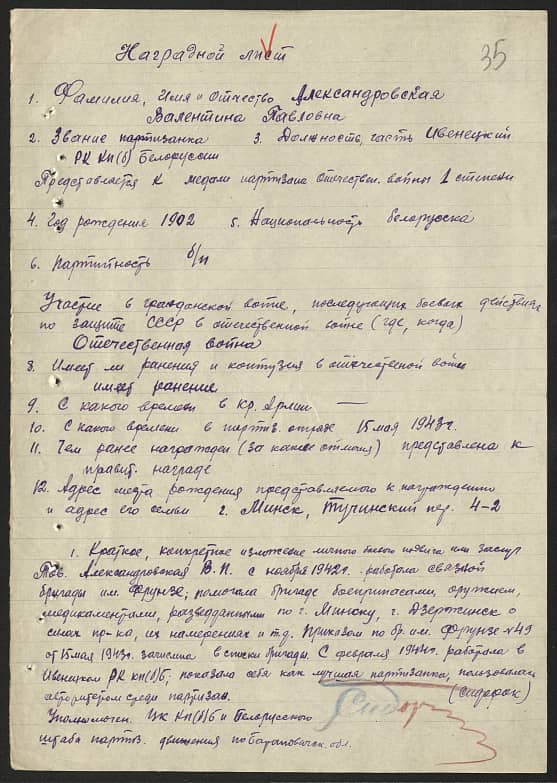 35
Наградной лист
1. Фамилия, Имя и Отчество Александровская
Валентина Павловна
2. Звание партизанка 3. Должность, часть Ивенецкий
РК КП(б) Белоруссии
Представляется к медали партизана отечествен. войны 1 степени
4. Год рождения 1902 5. Национальность белорусска
6. Партийность б/п
Участие в гражданской войне, последующих боевых действиях
по защите СССР в отечественной войне (где, когда)
Отечественная война
8. Имеет ли ранения и контузия в отечественой войне
имеет ранение
9. С какого времени в Кр. Армии —
10. С какого времени в партиз. отряде 15 мая 1943 г.
11. Чем ранее награжден (за какие отличия) представлена к
правит. награде
12. Адрес места рождения представляемого к награждению
и адрес его семьи г. Минск, Тучинский пер. 4-2
1. Краткое, конкретное изложение личного боевого подвига или заслуг
Тов. Александровская В.П. с ноября 1942 г. работала связной
бригады им. Фрунзе, помогала бригаде боеприпасами, оружием,
медикаментами, разведданными по г. Минску, г. Дзержинск о
силах пр-ка, их намерениях и т.д. Приказом по бр. им. Фрунзе №49
от 15 мая 1943 г. записана в списки бригады. С февраля 1944 г. работала в
Ивенецком РК КП(б)Б, показала себя как лучшая партизанка, пользовалась
авторитетом среди партизан. (Сидорок)
Уполномочен. ЦК КП(б)Б и Белорусского
штаба партиз. движения по Барановичск. обл.